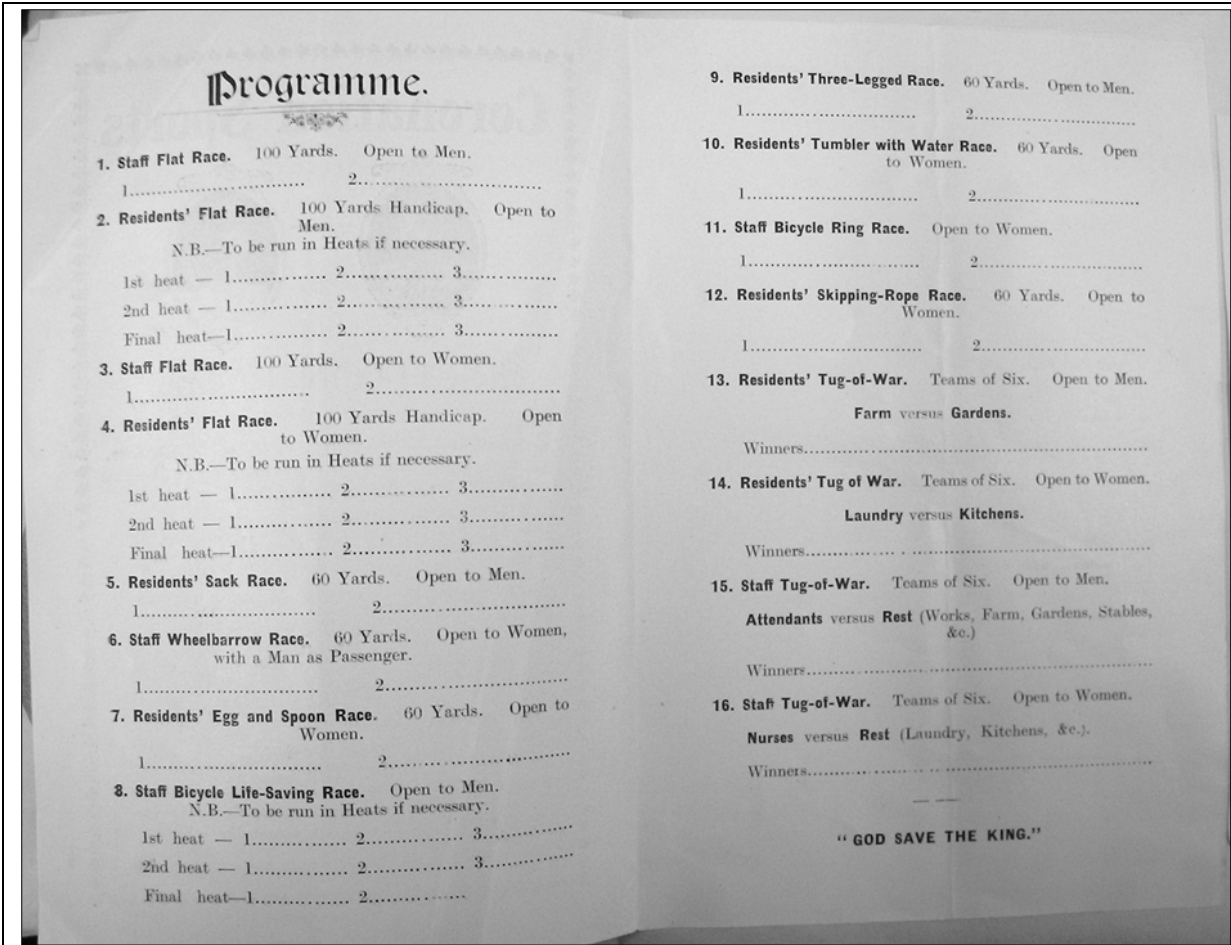 Programme.
1. Staff Flat Race. 100 Yards. Open to Men.
1.............................. 2................................
2. Residents' Flat Race. 100 Yards Handicap. Open to
Men.
N.B.—To be run in Heats if necessary.
1st heat — 1................ 2................. 3.................
2nd heat — 1................ 2................. 3.................
Final heat—1................ 2................. 3.................
3. Staff Flat Race. 100 Yards. Open to Women.
1.............................. 2................................
4. Residents' Flat Race. 100 Yards Handicap. Open
to Women.
N.B.—To be run in Heats if necessary.
1st heat — 1................ 2................. 3.................
2nd heat — 1................ 2................. 3.................
Final heat—1................ 2................. 3.................
5. Residents' Sack Race. 60 Yards. Open to Men.
1.............................. 2................................
6. Staff Wheelbarrow Race. 60 Yards. Open to Women,
with a Man as Passenger.
1.............................. 2................................
7. Residents' Egg and Spoon Race. 60 Yards. Open to
Women.
1.............................. 2................................
8. Staff Bicycle Life-Saving Race. Open to Men.
N.B.—To be run in Heats if necessary.
1st heat — 1................ 2................. 3................
2nd heat — 1................ 2................. 3................
Final heat—1................ 2.................
9. Residents' Three-Legged Race. 60 Yards. Open to Men.
1.............................. 2............................
10. Residents' Tumbler with Water Race. 60 Yards. Open
to Women.
1.............................. 2.............................
11. Staff Bicycle Ring Race. Open to Women.
1.............................. 2.............................
12. Residents' Skipping-Rope Race. 60 Yards. Open to
Women.
1.............................. 2.............................
13. Residents' Tug-of-War. Teams of Six. Open to Men.
Farm versus Gardens.
Winners...........................................................
14. Residents' Tug of War. Teams of Six. Open to Women.
Laundry versus Kitchens.
Winners...........................................................
15. Staff Tug-of-War. Teams of Six. Open to Men.
Attendants versus Rest (Works, Farm, Gardens, Stables,
&c.)
Winners...........................................................
16. Staff Tug-of-War. Teams of Six. Open to Women.
Nurses versus Rest (Laundry, Kitchens, &c.).
Winners...........................................................
"GOD SAVE THE KING."